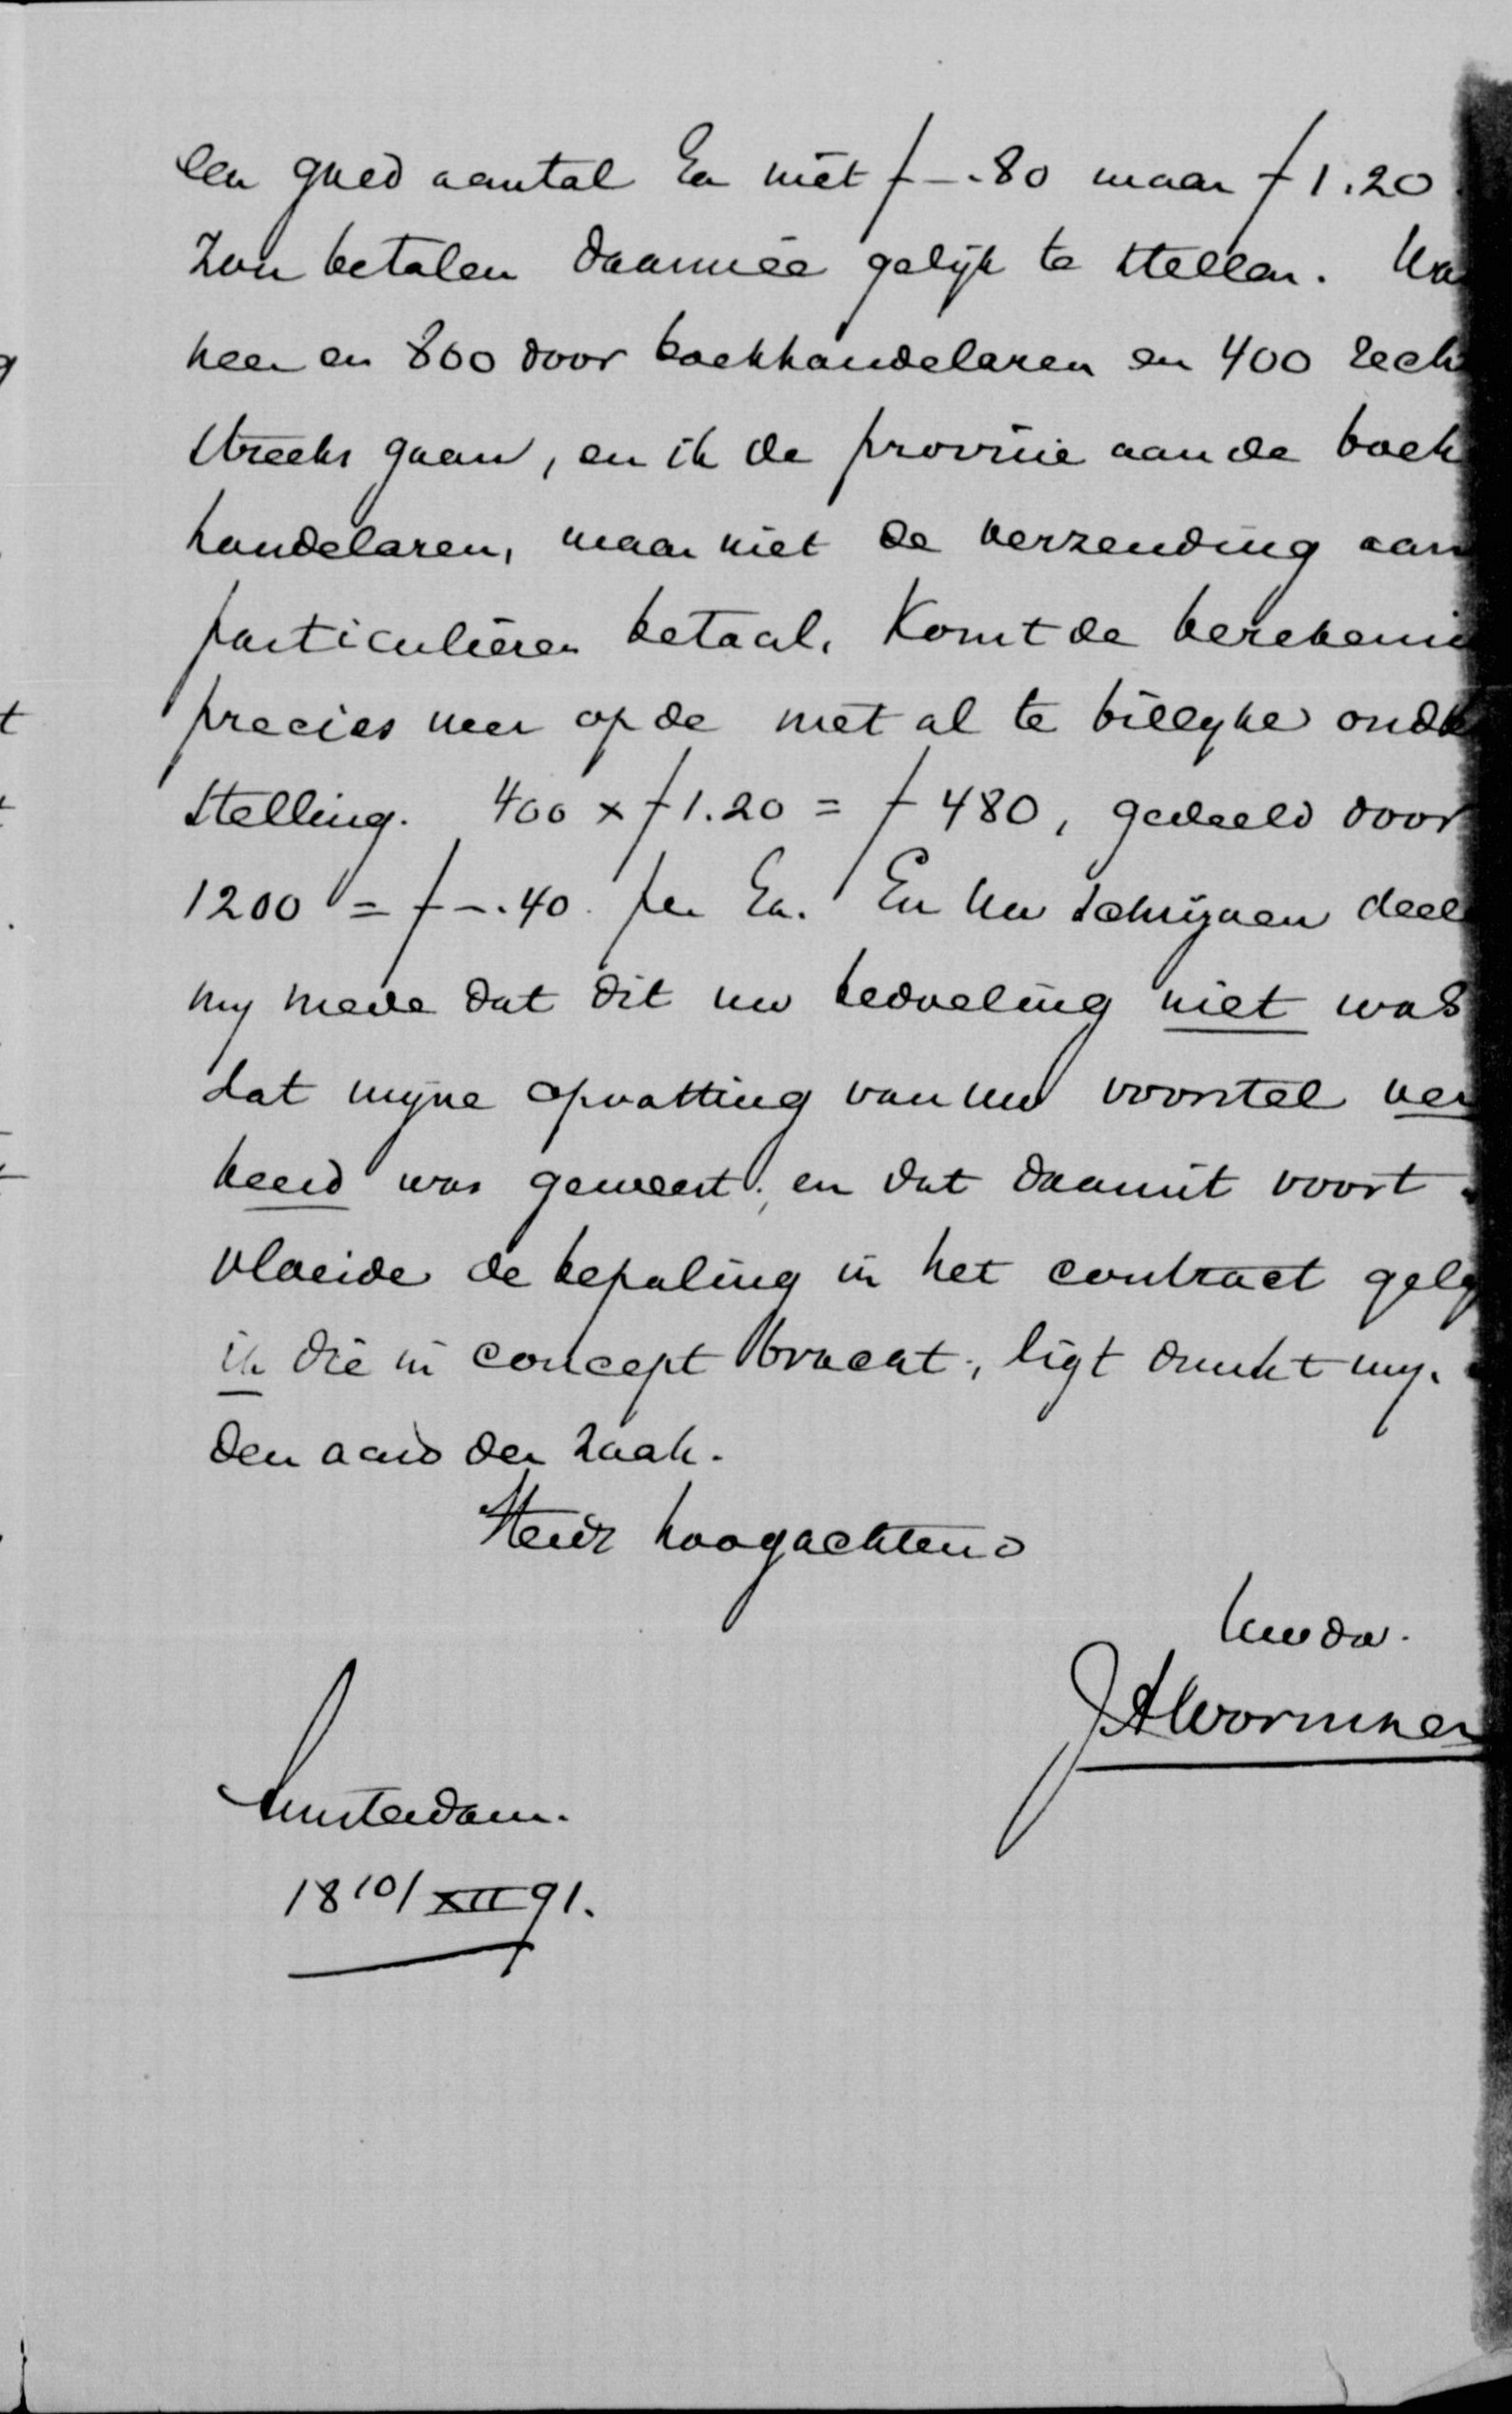 een goed aantal Ex niet f -.80 maar f 1.20
zou betalen daarmee gelijk te stellen. Wa
neer er 800 door boekhandelaren en 400 rech
streeks gaan, en ik de provisie aan de boek
handelaren, maar niet de verzending aan
particulieren betaal, komt de berekeni
precies neer op de niet al te billijke onde
stelling. 400 x f 1.20 = f 480, gedeeld door
1200 = f -.40 per Ex. En uw schrijven deel
my mede dat dit uw bedoeling niet was
dat mijne opvatting van uw voorstel ver
keerd was geweest; en dat daaruit voort
vloeide de bepaling in het contract gely
ik die in concept bracht, ligt dunkt my.
den aard der zaak.
Steeds hoogachtend
Uwdw.
JAWormser
Amsterdam.
18 10/XII 91.